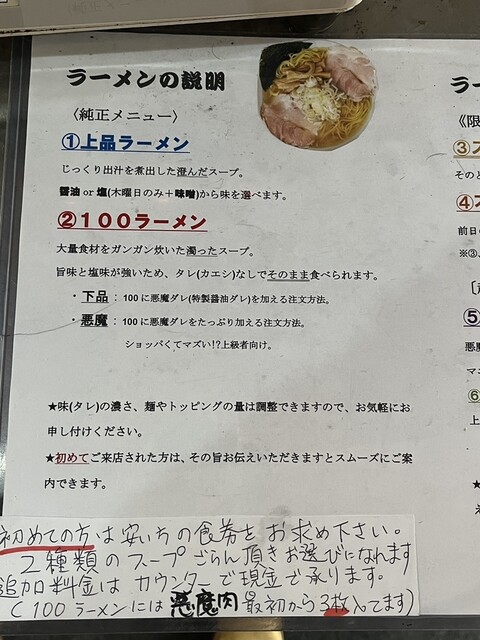 ラーメンの説明
〈純正メニュー〉
①上品ラーメン
じっくり出汁を煮出した澄んだスープ。
醤油 or 塩(木曜日のみ＋味噌)から味を選べます。
②１００ラーメン
大量食材をガンガン炊いた濁ったスープ。
旨味と塩味が強いため、タレ(カエシ)なしでそのまま食べられます。
・下品：100に悪魔ダレ(特製醤油ダレ)を加える注文方法。
・悪魔：100に悪魔ダレをたっぷり加える注文方法。
ショッパくてマズい!?上級者向け。
★味(タレ)の濃さ、麺やトッピングの量は調整できますので、お気軽にお
申し付けください。
★初めてご来店された方は、その旨お伝えいただきますとスムーズにご案
内できます。
初めての方は安いちの食券をお求め下さい。
2種類のスープごらん頂きお選びになれます
追加料金はカウンターで現金で承ります。
(100ラーメンには悪魔肉最初から3枚入ってます)
ラー
〈限
③
そのと
④
前日の
※③、
⑤
悪魔
マン
⑥
上
★